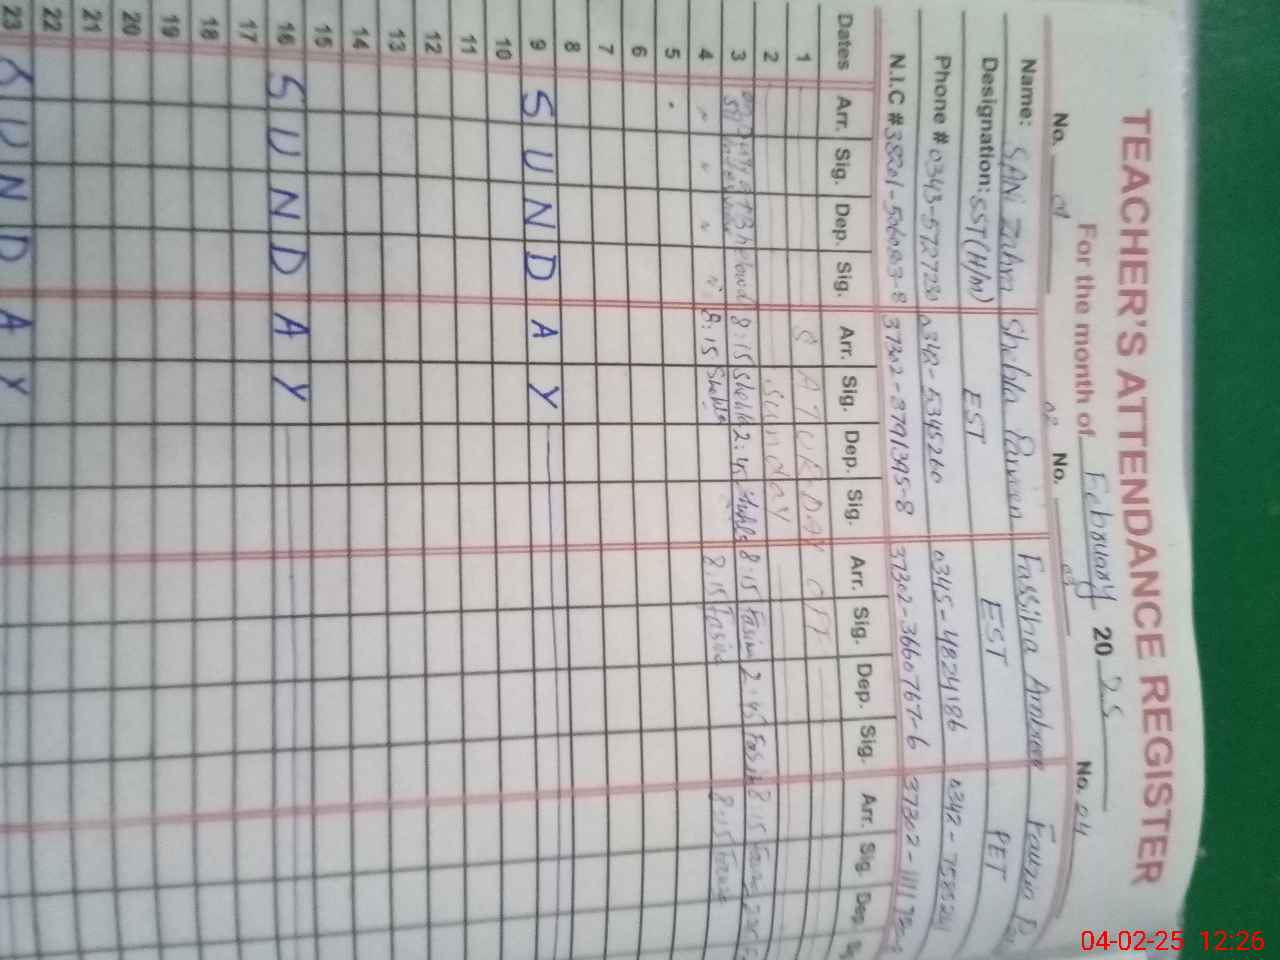 TEACHER'S ATTENDANCE REGISTER
For the month of February 2025
No. 01 02 No. 03 No. 04
Name: SANi Zahra Shehla Parveen Fassiha Ambreen Fauzia
Designation: SST(H/M) EST EST PET
Phone # 0343-5727230 0342-5345260 0345-4824186 0342-
N.I.C # 38201- 37302-3791395-8 37302-3660767-6 37302-1111
Dates Arr. Sig. Dep. Sig. Arr. Sig. Dep. Sig. Arr. Sig. Dep. Sig. Arr. Sig. Dep.
1 SATURDAY OFF
2 Sunday
3 8:15 Shehla 2:45 Shehla 8:15 2:45 8:15
4 " " " " 8:15 Shehla 8:15 8:15
5
6
7
8
9 SUNDAY
10
11
12
13
14
15
16 SUNDAY
17
18
19
20
21
22
23 SUNDAY
04-02-25 12:26